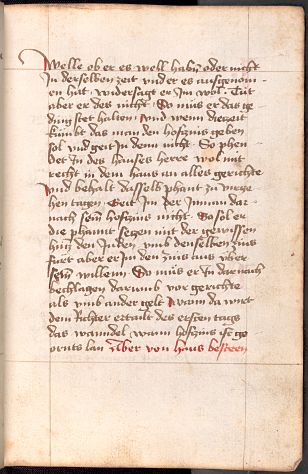 Welle ob er es well habn oder nicht
In derselben zeit vnd er es aufgenom
en hat widersagt er Im wol Tut
aber er des nicht So mus er das ge
ding stet halten Und wenn die zeit
kumbt das man den hofzins geben
sol vnd geit In denn nicht So phen
det In des hauses herre wol mit
recht in dem haus an alles gerichte
Und behalt dasselb phant zu virze
hen tagen Geit In der Inman dar
nach sein hofzins nicht So sol er
die phannt seczen mit der gewissen
hin den Juden vmb denselben zins
fuert aber er Im den zins aus vber
sein willenn So mus er In darnach
bechlagen darumb vor gerichte
als vmb ander gelt wann da wirt
dem Richter ertailt des ersten tags
das wanndel wann hofzins ist ge
ornts lan Aber von haus besteen